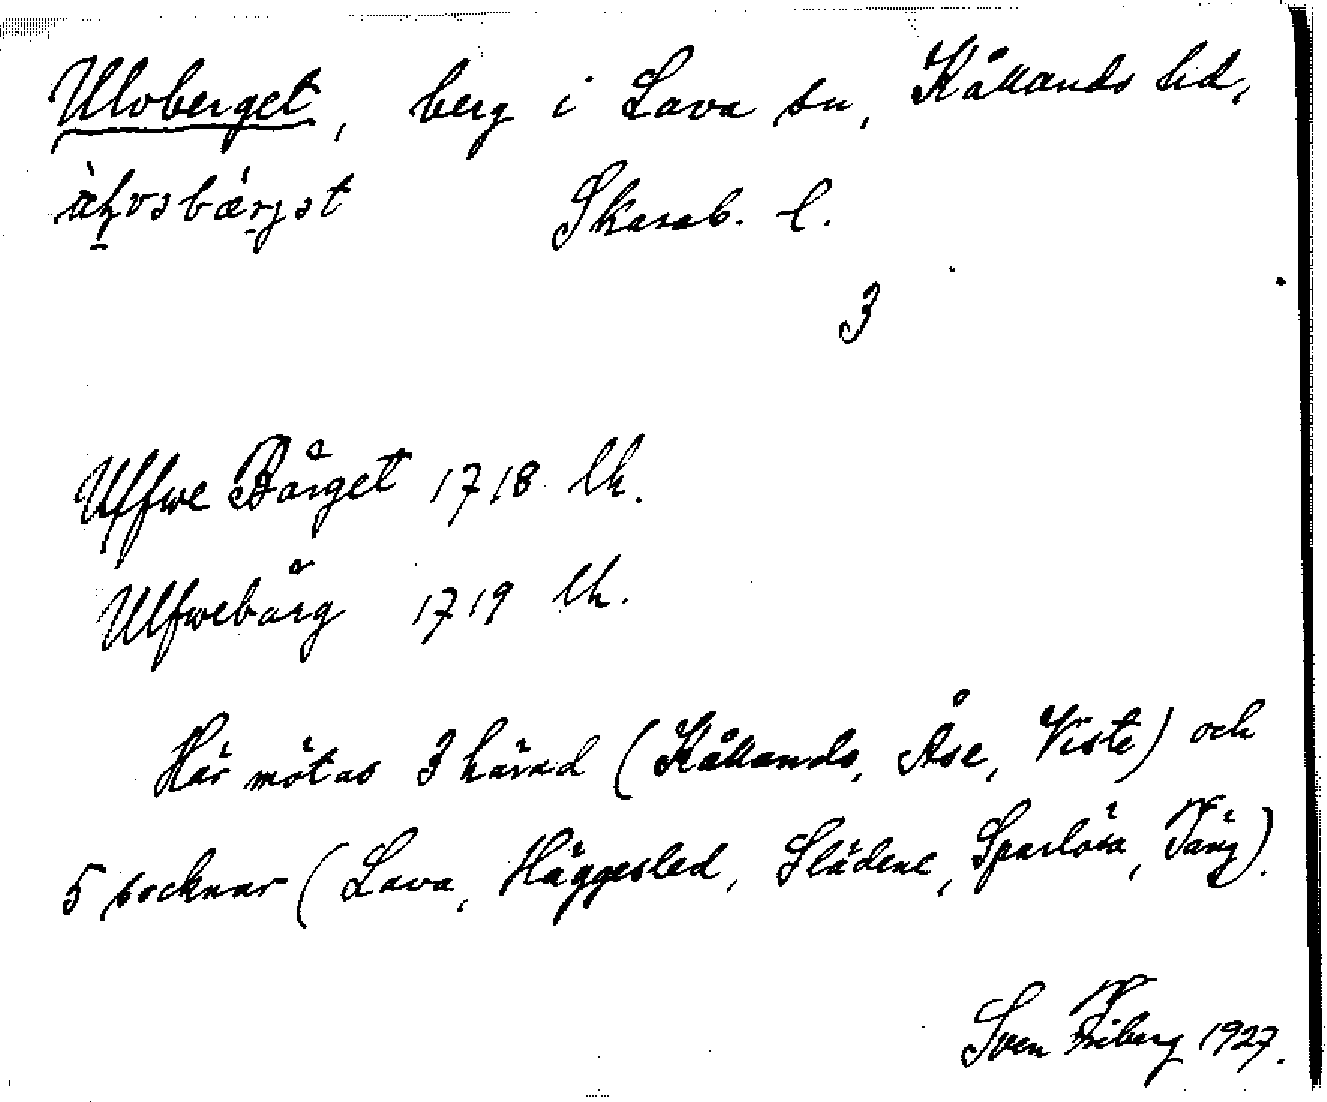 Ulvberget, berg i Lava sn, Kållands hd,
Skarab. l.
3
Uffwe Bärget 1718 lk.
Ulfwebärg 1719 lk.
Här mötas 3 härad (Kållands, Åse, Viste) och
5 socknar (Lava, Häggesled, Slädene, Sparlösa, Täng).
Sven Friberg 1927.